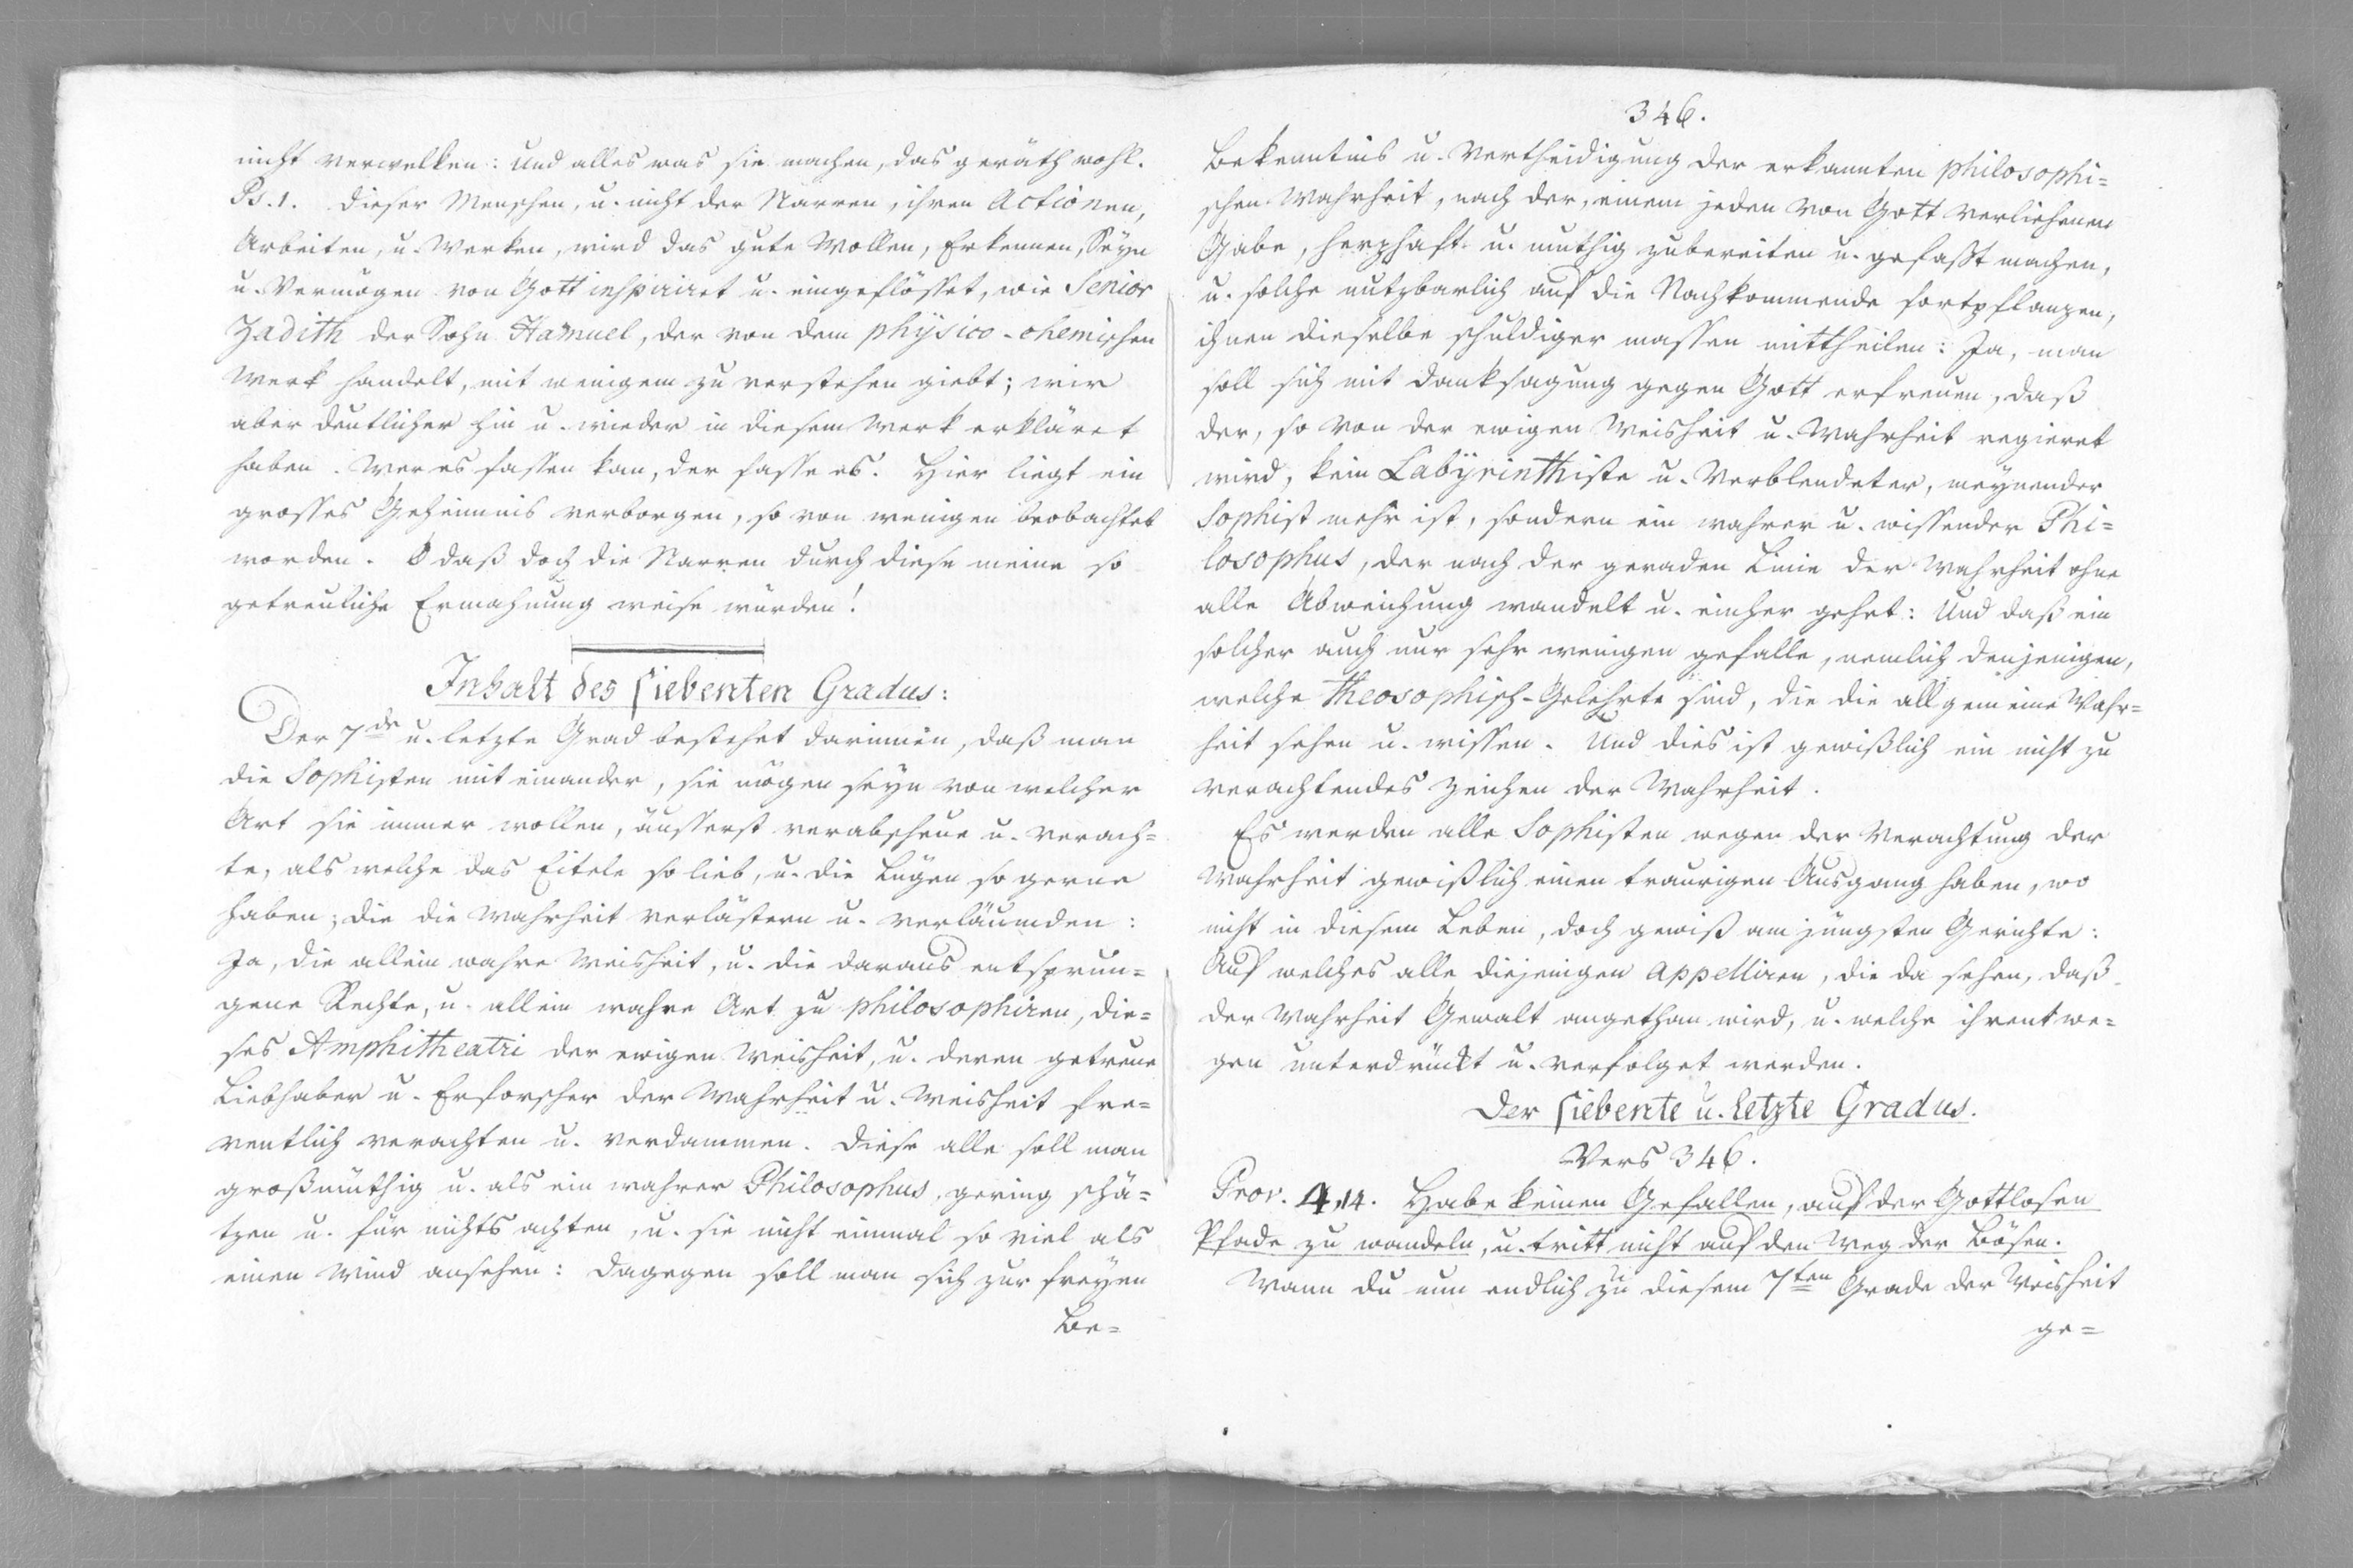 nicht verwelken: Und alles was sie machen, das geräth wohl.
Ps. 1. Dieser Menschen, u. nicht der Narren, ihren Actionen,
Arbeiten, u. Werken, wird das gute Wollen, Erkennen, Seyn
u. Vermögen von Gott inspiriret u. eingeflösset, wie Senior
Zadith der Sohn Hamuel, der von dem physico-chemischen
Werk handelt, mit wenigem zu verstehen giebt; wir
aber deutlicher hin u. wieder in diesem Werk erkläret
haben. Wer es fassen kan, der fasse es. Hier liegt ein
grosses Geheimnis verborgen, so von wenigen beobachtet
worden. O daß doch die Narren durch diese meine so
getreuliche Ermahnung weise würden!
Inhalt des siebenten Gradus:
Der 7de u. letzte Grad bestehet darinnen, daß man
die Sophisten mit einander, sie mögen seyn von welcher
Art sie immer wollen, äusserst verabscheue u. verach=
te, als welche das Eitele so lieb, u. die Lügen so gerne
haben; die die Wahrheit verlästern u. verläumden:
Ja, die allein wahre Weisheit, u. die daraus entsprun=
gene Rechte, u. allein wahre Art zu philosophiren, die=
ses Amphitheatri der ewigen Weisheit, u. deren getreue
Liebhaber u. Erforscher der Wahrheit u. Weisheit fre=
ventlich verachten u. verdammen. Diese alle soll man
großmüthig u. als ein wahrer Philosophus, gering schä=
tzen u. für nichts achten, u. sie nicht einmal so viel als
einen Wind ansehen: Dagegen soll man sich zur freyen
Be=
346.
Bekenntnis u. Vertheidigung der erkannten philosophi=
schen Wahrheit, nach der, einem jeden von Gott verliehenen
Gabe, herzhaft u. muthig zubereiten u. gefaßt machen,
u. solche nutzbarlich auf die Nachkommende fortpflanzen,
ihnen dieselbe schuldiger massen mittheilen: Ja, man
soll sich mit Danksagung gegen Gott erfreuen, daß
der, so von der ewigen Weisheit u. Wahrheit regieret
wird, kein Labyrinthiste u. Verblendeter, meynender
Sophist mehr ist, sondern ein wahrer u. wissender Phi=
losophus, der nach der geraden Linie der Wahrheit ohne
alle Abweichung wandelt u. einher gehet: Und daß ein
solcher auch nur sehr wenigen gefalle, nemlich denjenigen,
welche Theosophisch-Gelehrte sind, die die allgemeine Wahr=
heit sehen u. wissen. Und dies ist gewißlich ein nicht zu
verachtendes Zeichen der Wahrheit.
Es werden alle Sophisten wegen der Verachtung der
Wahrheit gewißlich einen traurigen Ausgang haben, wo
nicht in diesem Leben, doch gewiß am jüngsten Gerichte:
Auf welches alle diejenigen appelliren, die da sehen, daß
der Wahrheit Gewalt angethan wird, u. welche ihrentwe=
gen unterdrückt u. verfolget werden.
Der siebente u. letzte Gradus.
Vers 346.
Prov. 4,14. Habe keinen Gefallen, auf der Gottlosen
Pfade zu wandeln, u. tritt nicht auf den Weg der Bösen.
Wann du nun endlich zu diesem 7ten Grade der Weisheit
ge=